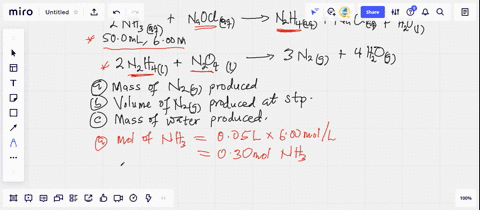 miro Untitled
2NH₃(aq) + NaOCl(aq) → N₂H₄(aq) + NaCl(aq) + H₂O(l)
* 50.0mL, 6.00M
* 2N₂H₄(l) + N₂O₄(l) → 3N₂(g) + 4H₂O(g)
(a) Mass of N₂(g) produced
(b) Volume of N₂(g) produced at stp.
(c) Mass of water produced.
(a) mol of NH₃ = 0.05L × 6.00mol/L
= 0.30mol NH₃
100%